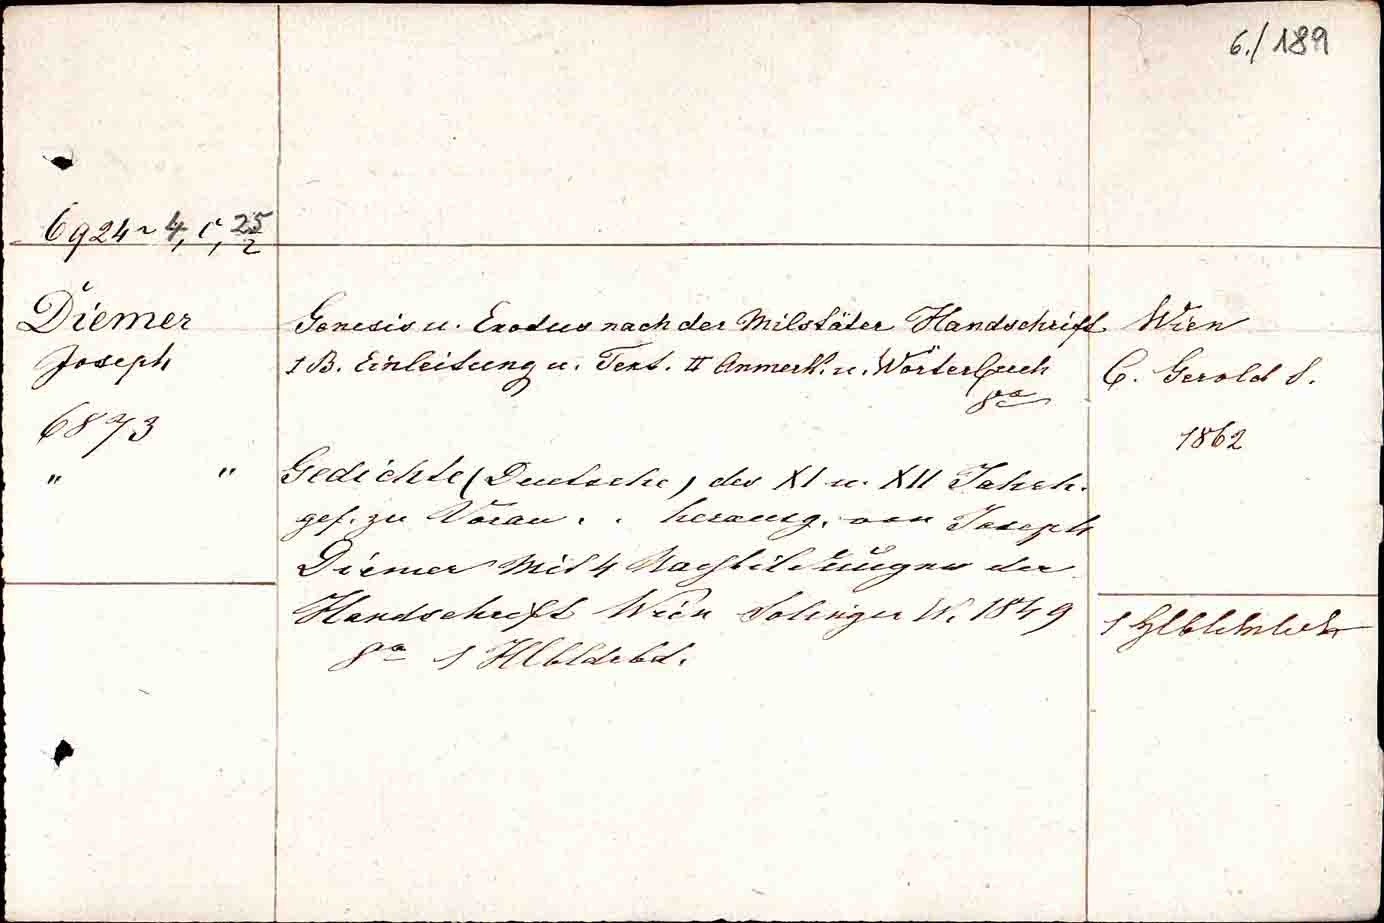 6./189
6924~4, C, 25/2
Diemer
Joseph
6873
" "
Genesis u. Exodus nach der Milstäter Handschrift
1 B. Einleitung u. Text. II Anmerk. u. Wörterbuch
8o
Gedichte (Deutsche) des XI u. XII Jahrh.
gef. zu Vorau . . herausg. von Joseph
Diemer Mit 4 Nachbildungen der
Handschrift Wien Solinger W. 1849
8o 1 Hlbldrbd.
Wien
C. Gerold S.
1862
1